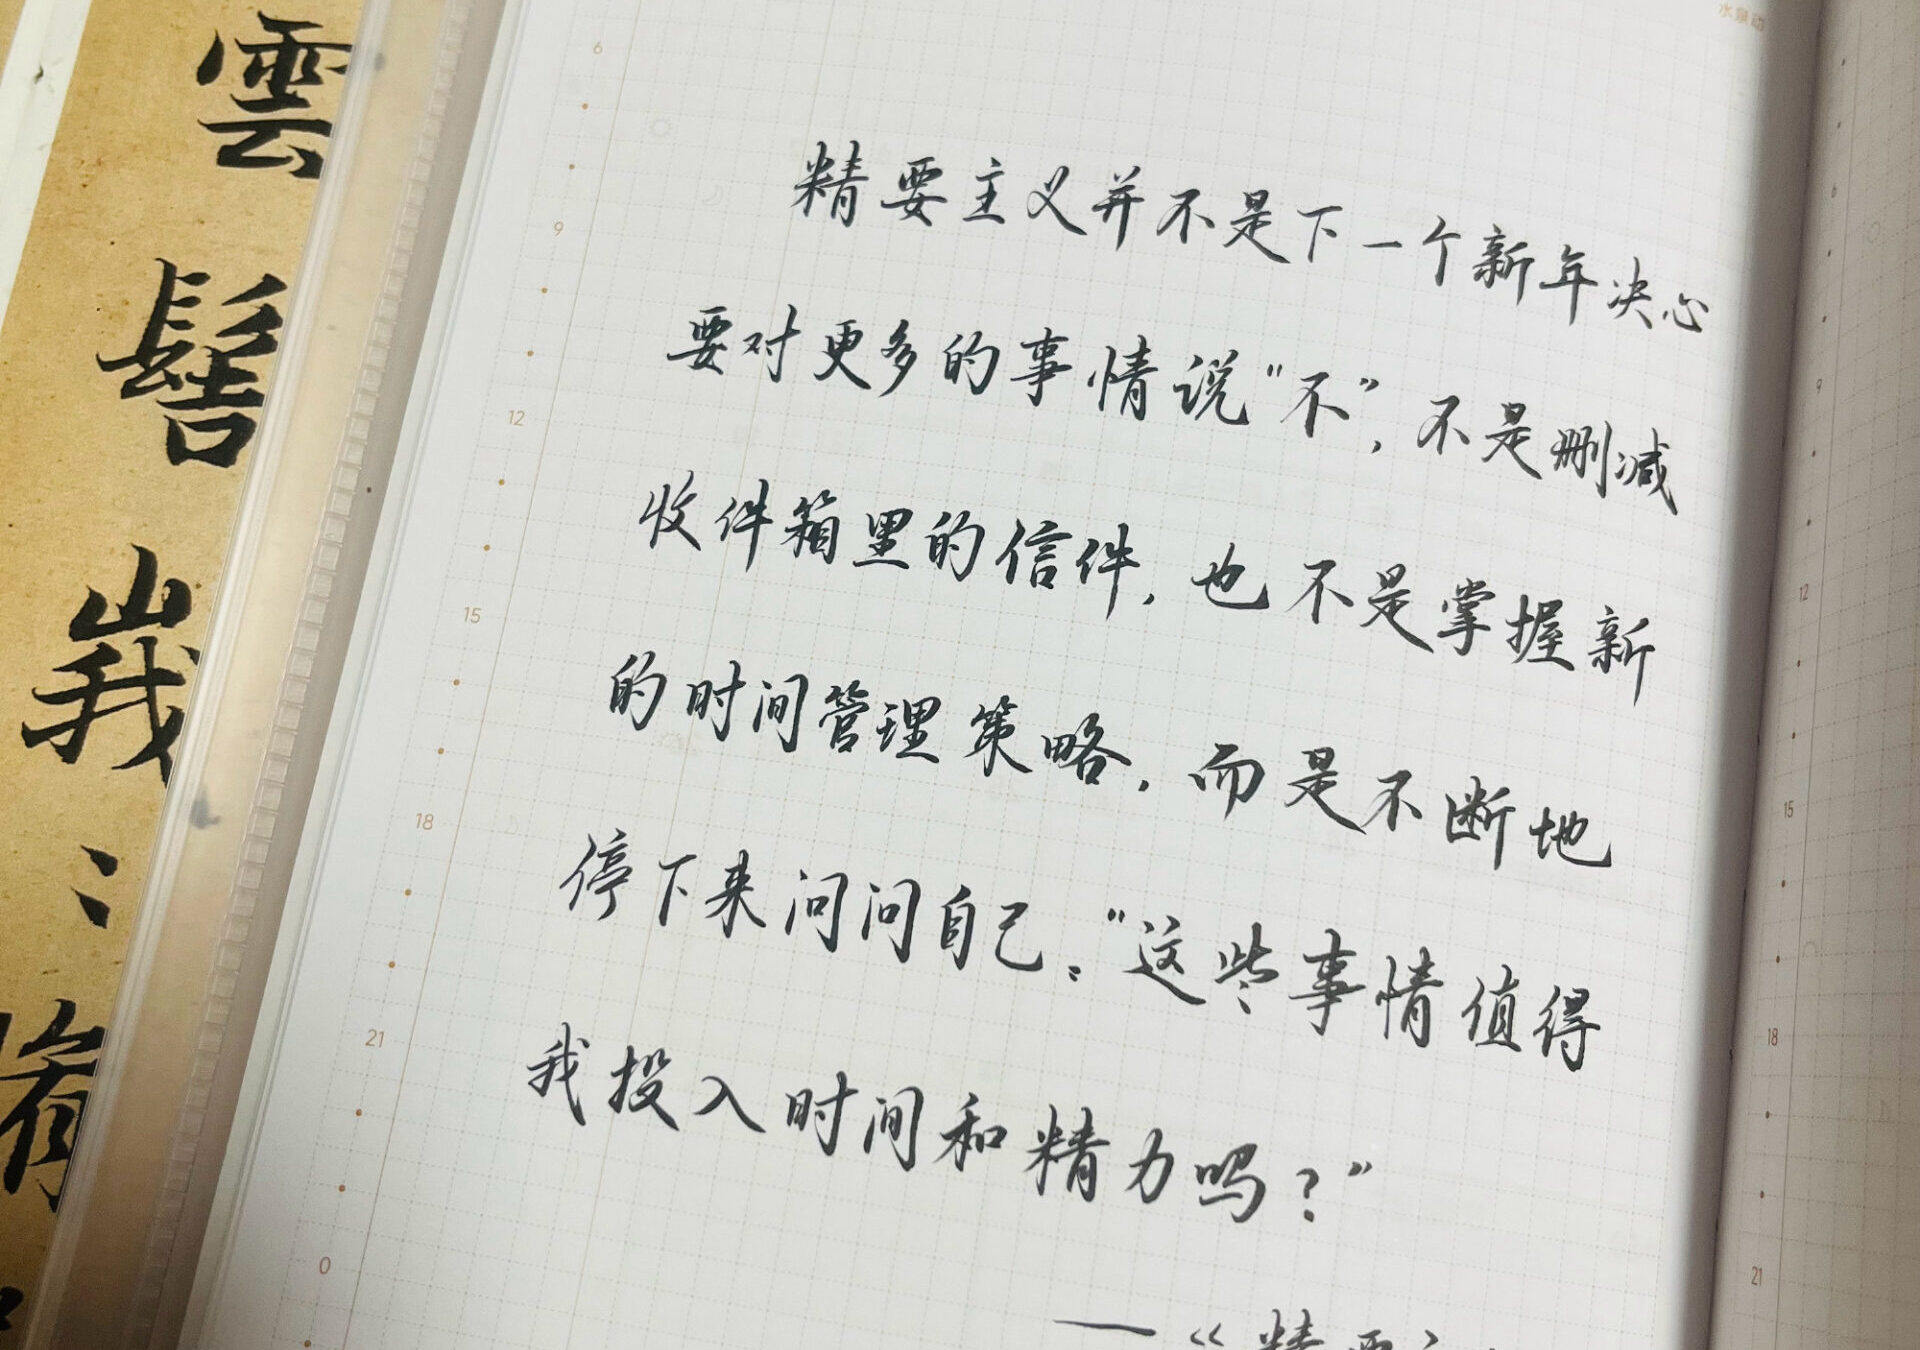 雲
髻
峩
精要主义并不是下一个新年决心
要对更多的事情说“不”，不是删减
收件箱里的信件，也不是掌握新
的时间管理策略，而是不断地
停下来问问自己：“这些事情值得
我投入时间和精力吗？”
——《精要主
6
9
12
15
18
21
0
9
12
15
18
21